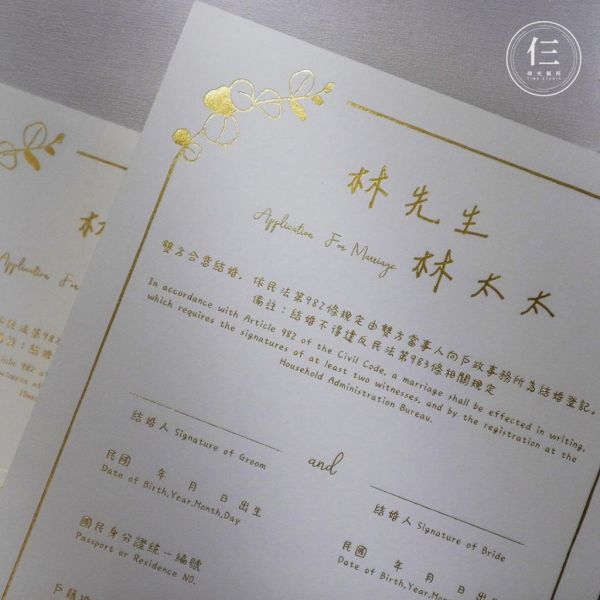 仨
時光製所
Time Studio
林先生
Application For Marriage
林太太
雙方合意結婚，依民法第982條規定由雙方當事人向戶政事務所為結婚登記。
備註：結婚不得違反民法第983條相關規定
In accordance with Article 982 of the Civil Code, a marriage shall be effected in writing,
which requires the signatures of at least two witnesses, and by the registration at the
Household Administration Bureau.
結婚人 Signature of Groom
and
結婚人 Signature of Bride
民國 年 月 日 出生
Date of Birth,Year,Month,Day
民國 年 月 日
Date of Birth,Year,Month,
國民身分證統一編號
Passport or Residence NO.
國民
Passport
戶籍
林
Application For
依民法第982
備註：結婚